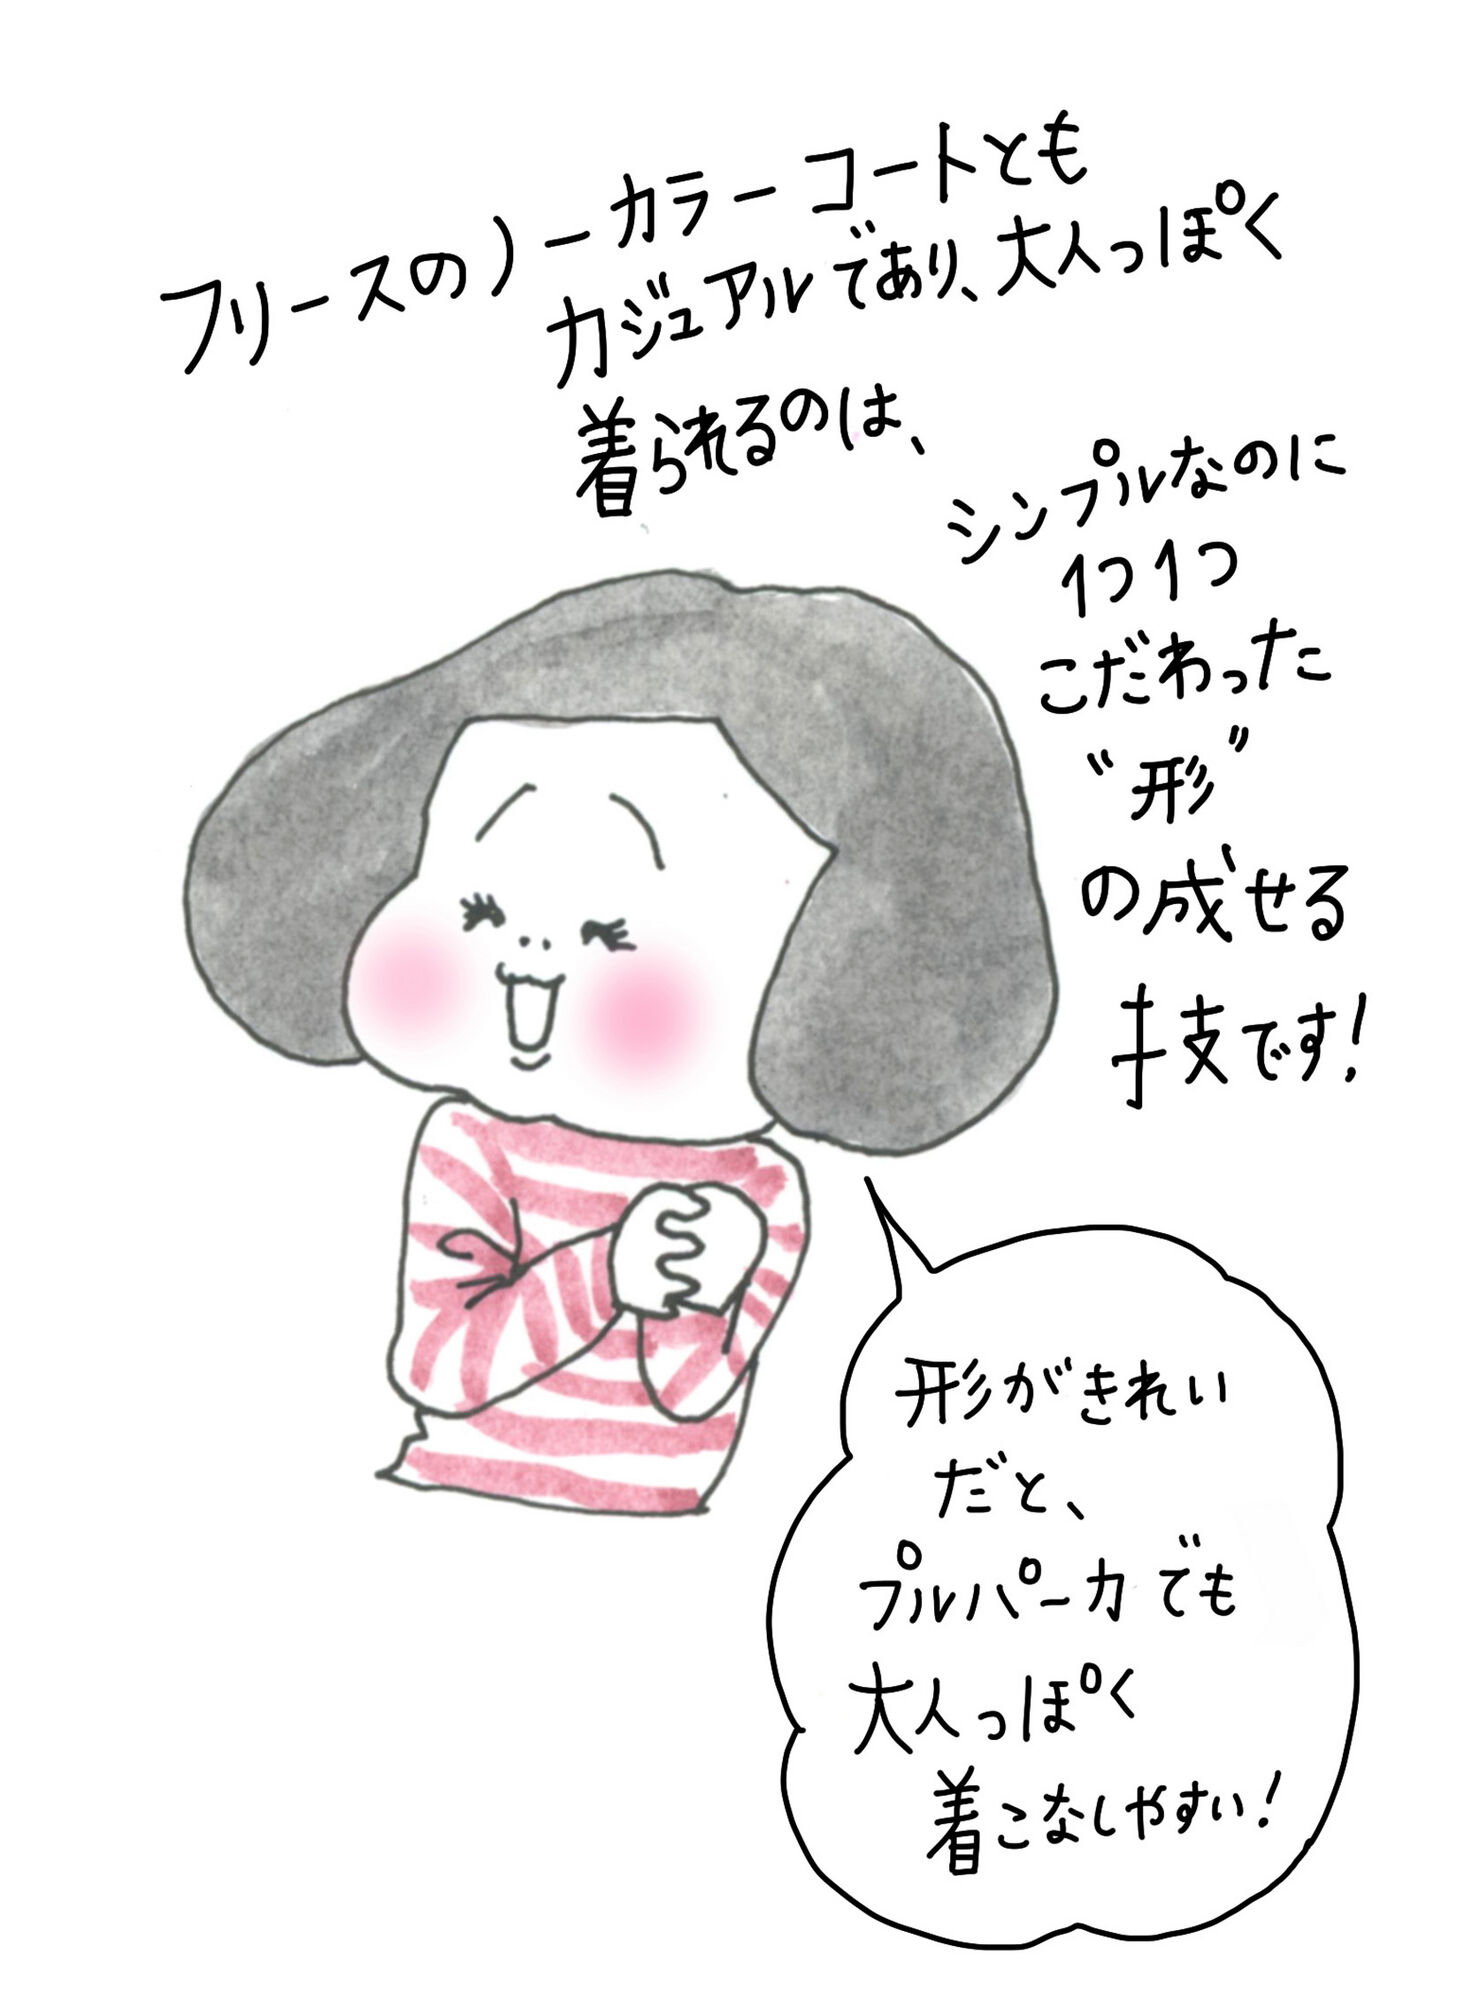 フリースのノーカラーコートとも
カジュアルであり、大人っぽく
着られるのは、
シンプルなのに
1つ1つ
こだわった
"形"
の成せる
技です!
形がきれい
だと、
プルパーカでも
大人っぽく
着こなしやすい!